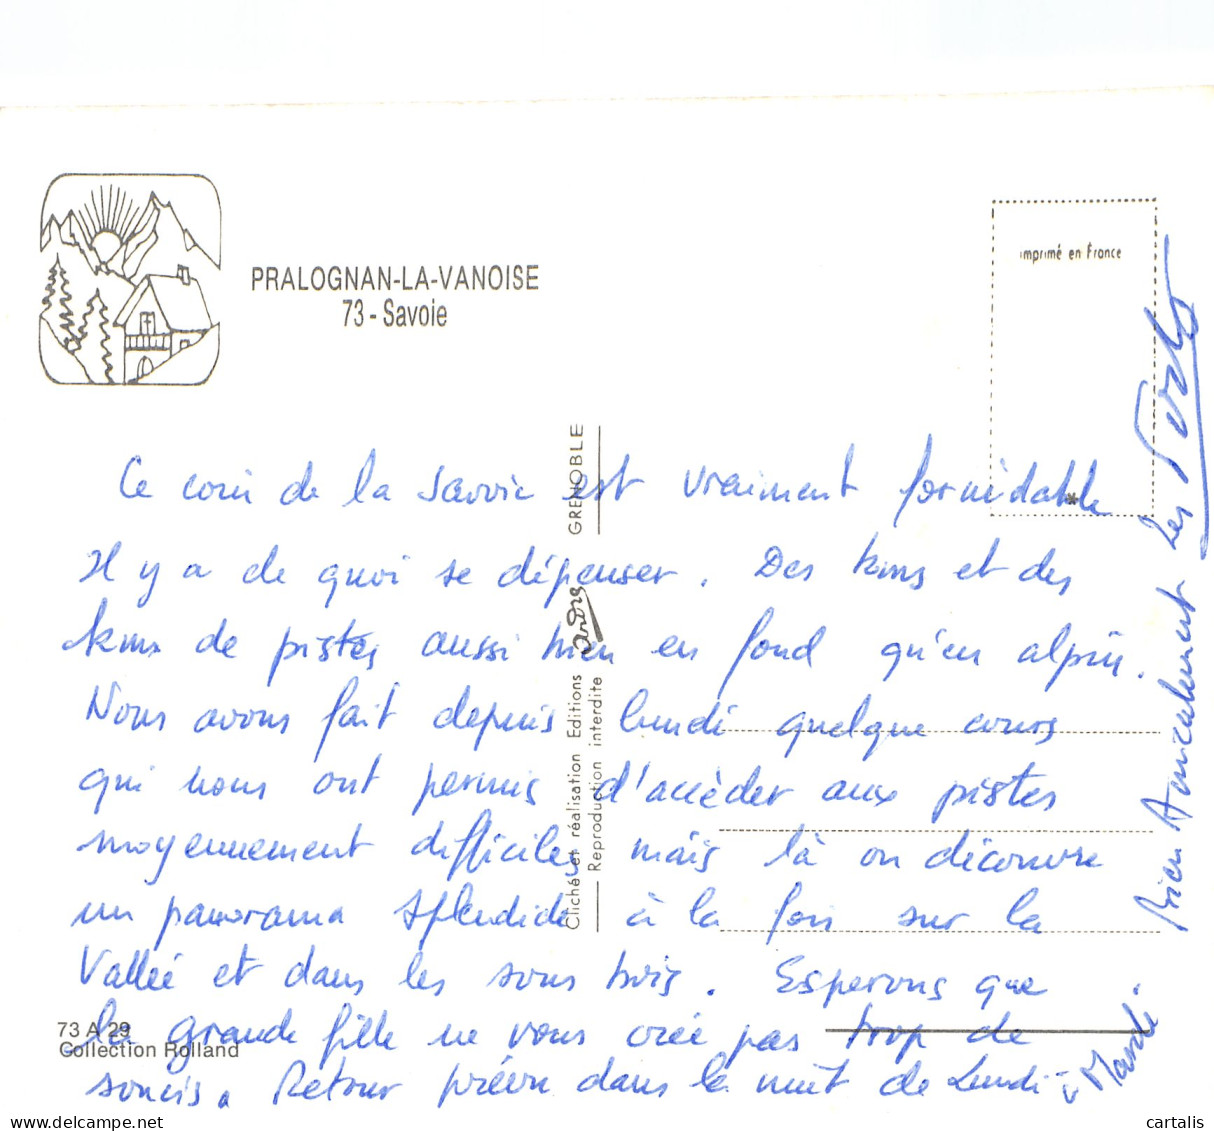 PRALOGNAN-LA-VANOISE
73 - Savoie
imprimé en France
Ce coin de la Savoie est vraiment formidable
Il y a de quoi se dépenser. Des kms et des
kms de pistes aussi bien en fond qu'en alpin.
Nous avons fait depuis lundi quelque cours
qui nous ont permis d'accéder aux pistes
moyennement difficiles mais là on découvre
un panorama splendide à la fois sur la
Vallée et dans les sous bois. Esperons que
la grande fille ne vous crée pas trop de
soucis. Retour prévu dans la nuit de Lundi
à Mardi.
Bien Amicalement Les
Clichés et réalisation Editions André GRENOBLE
Reproduction interdite
73 A 29
Collection Rolland
cartalis